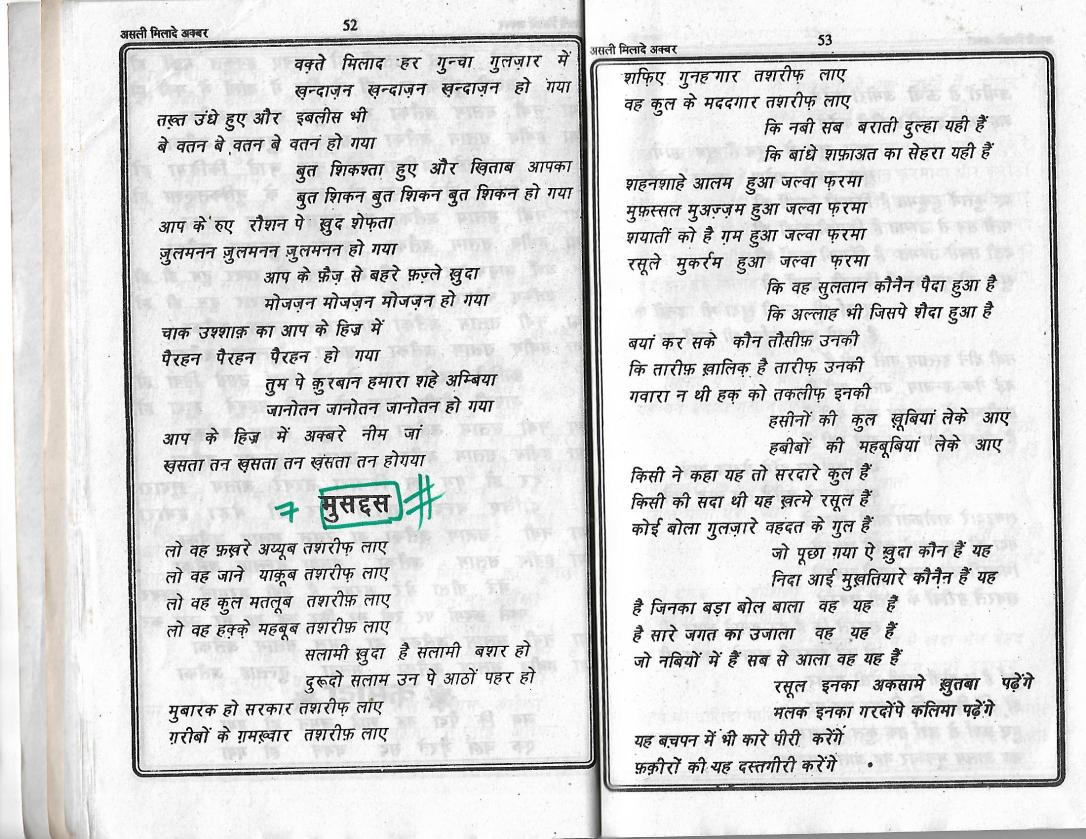 52
असली मिलादे अक्बर
वक़्ते मिलाद हर गुन्चा गुलज़ार में
ख़न्दाज़न ख़न्दाज़न ख़न्दाज़न हो गया
तख़्त उंधे हुए और इबलीस भी
बे वतन बे वतन बे वतन हो गया
बुत शिकश्ता हुए और ख़िताब आपका
बुत शिकन बुत शिकन बुत शिकन हो गया
आप के रुए रौशन पे ख़ुद शेफ़्ता
ज़ुलमनन ज़ुलमनन ज़ुलमनन हो गया
आप के फ़ैज़ से बहरे फ़ज़्ले ख़ुदा
मोजज़न मोजज़न मोजज़न हो गया
चाक उश्शाक़ का आप के हिज्र में
पैरहन पैरहन पैरहन हो गया
तुम पे क़ुरबान हमारा शहे अम्बिया
जानोतन जानोतन जानोतन हो गया
आप के हिज्र में अक्बरे नीम जां
ख़सता तन ख़सता तन ख़सता तन होगया
7 मुसद्दस #
लो वह फ़ख़रे अय्यूब तशरीफ़ लाए
लो वह जाने याक़ूब तशरीफ़ लाए
लो वह कुल मतलूब तशरीफ़ लाए
लो वह हक़्क़े महबूब तशरीफ़ लाए
सलामी ख़ुदा है सलामी बशर हो
दुरूदो सलाम उन पे आठों पहर हो
मुबारक हो सरकार तशरीफ़ लाए
ग़रीबों के ग़मख़्वार तशरीफ़ लाए
53
असली मिलादे अक्बर
शफ़िए गुनहगार तशरीफ़ लाए
वह कुल के मददगार तशरीफ़ लाए
कि नबी सब बराती दुल्हा यही हैं
कि बांधे शफ़ाअत का सेहरा यही हैं
शहनशाहे आलम हुआ जल्वा फ़रमा
मुफ़स्सल मुअज़्ज़म हुआ जल्वा फ़रमा
शयातीं को है ग़म हुआ जल्वा फ़रमा
रसूले मुकर्रम हुआ जल्वा फ़रमा
कि वह सुलतान कौनैन पैदा हुआ है
कि अल्लाह भी जिसपे शैदा हुआ है
बयां कर सके कौन तौसीफ़ उनकी
कि तारीफ़ ख़ालिक़ है तारीफ़ उनकी
गवारा न थी हक़ को तकलीफ़ इनकी
हसीनों की कुल ख़ूबियां लेके आए
हबीबों की महबूबियां लेके आए
किसी ने कहा यह तो सरदारे कुल हैं
किसी की सदा थी यह ख़त्मे रसूल हैं
कोई बोला गुलज़ारे वहदत के गुल हैं
जो पूछा गया ऐ ख़ुदा कौन हैं यह
निदा आई मुख़तियारे कौनैन हैं यह
है जिनका बड़ा बोल बाला वह यह हैं
है सारे जगत का उजाला वह यह हैं
जो नबियों में हैं सब से आला वह यह हैं
रसूल इनका अकसामे ख़ुतबा पढ़ेंगे
मलक इनका गरदोंपे कलिमा पढ़ेंगे
यह बचपन में भी कारे पीरी करेंगे
फ़क़ीरों की यह दस्तगीरी करेंगे